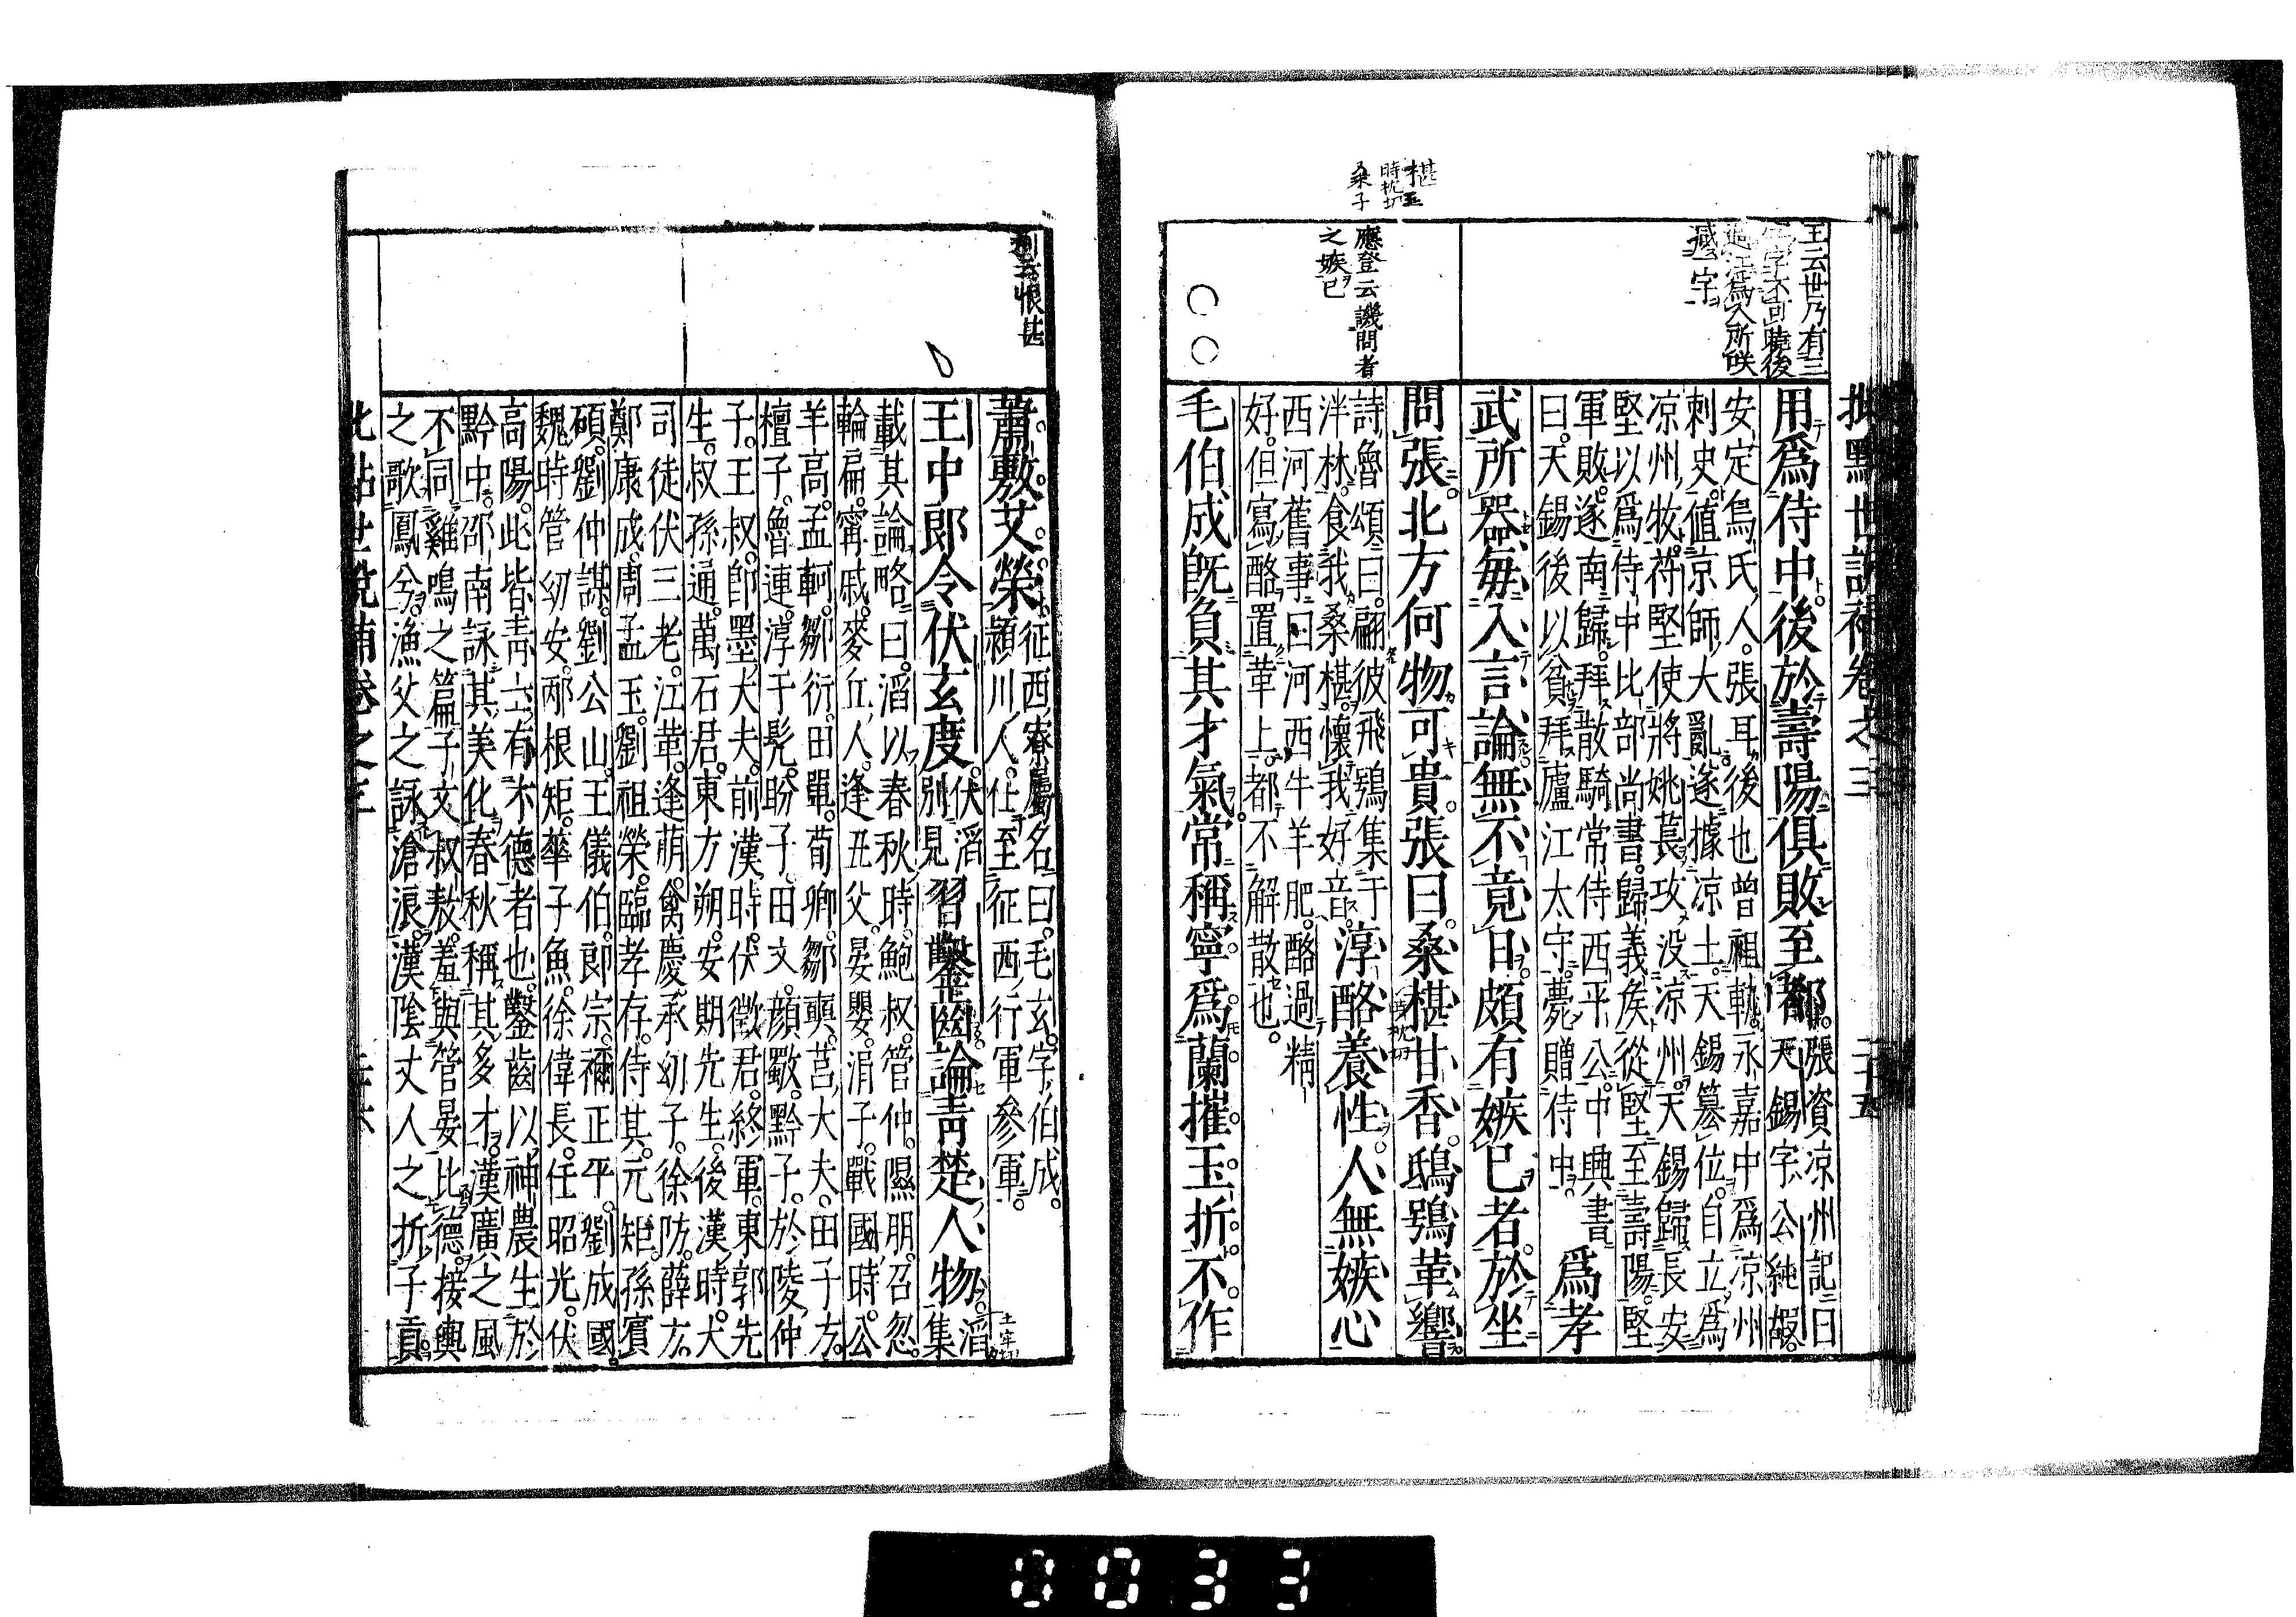 批點世説補卷之三 二十五
王云世乃有三
字不可曉後
過江爲人所咲
減一字
用爲侍中後於壽陽俱敗至都張資涼州記曰
天錫字公純嘏
安定烏氏人張耳後也曾祖軌永嘉中爲涼州
刺史値京師大亂遂據涼土天錫簒位自立爲
凉州牧苻堅使將姚萇攻没涼州天錫歸長安
堅以爲侍中比部尚書歸義侯從堅至壽陽堅
軍敗遂南歸拜散騎常侍西平公中興書
曰天錫後以貧拜廬江太守薨贈侍中爲孝
武所器毎入言論無不竟日頗有嫉已者於坐
問張北方何物可貴張曰桑椹甘香鴟鴞革響
時枕切
椹
時枕切
桑子
應登云譏問者
之嫉已
詩魯頌曰翩彼飛鴞集于
泮林食我桑椹懷我好音淳酪養性人無嫉心
西河舊事曰河西牛羊肥酪過精
好但寫酪置革上都不解散也
毛伯成既負其才氣常稱寧爲蘭摧玉折不作
劉云恨甚
蕭敷艾榮征西寮屬名曰毛玄字伯成
潁川人仕至征西行軍參軍
王中郎令伏玄度伏滔
別見習鑿齒論青楚人物滔
集
載其論略曰滔以春秋時鮑叔管仲隰朋召忽
輪扁甯戚麥丘人逢丑父晏嬰涓子戰國時公
羊高孟軻鄒衍田單荀卿鄒奭莒大夫田子方
檀子魯連淳于髡盼子田文顔歜黔子於陵仲
子王叔即墨大夫前漢時伏徵君終軍東郭先
生叔孫通萬石君東方朔安期先生後漢時大
司徒伏三老江革逢萌禽慶承幼子徐防薛方
鄭康成周孟玉劉祖榮臨孝存侍其元矩孫賓
碩劉仲謀劉公山王儀伯郎宗禰正平劉成國
魏時管幼安邴根矩華子魚徐偉長任昭光伏
高陽此皆青士有才德者也鑿齒以神農生於
黔中邵南詠其美化春秋稱其多才漢廣之風
不同雞鳴之篇子文叔敖羞與管晏比德接輿
之歌鳳兮漁父之詠滄浪漢陰丈人之折子貢